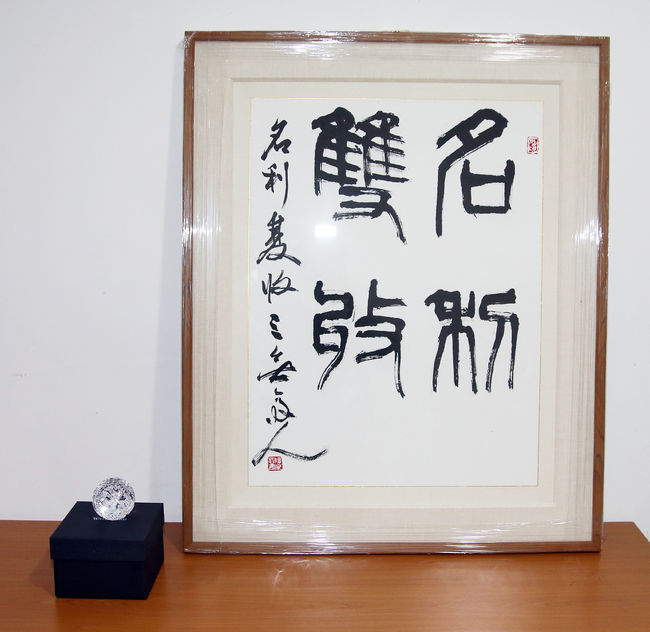 名利
雙收
名利雙收三人